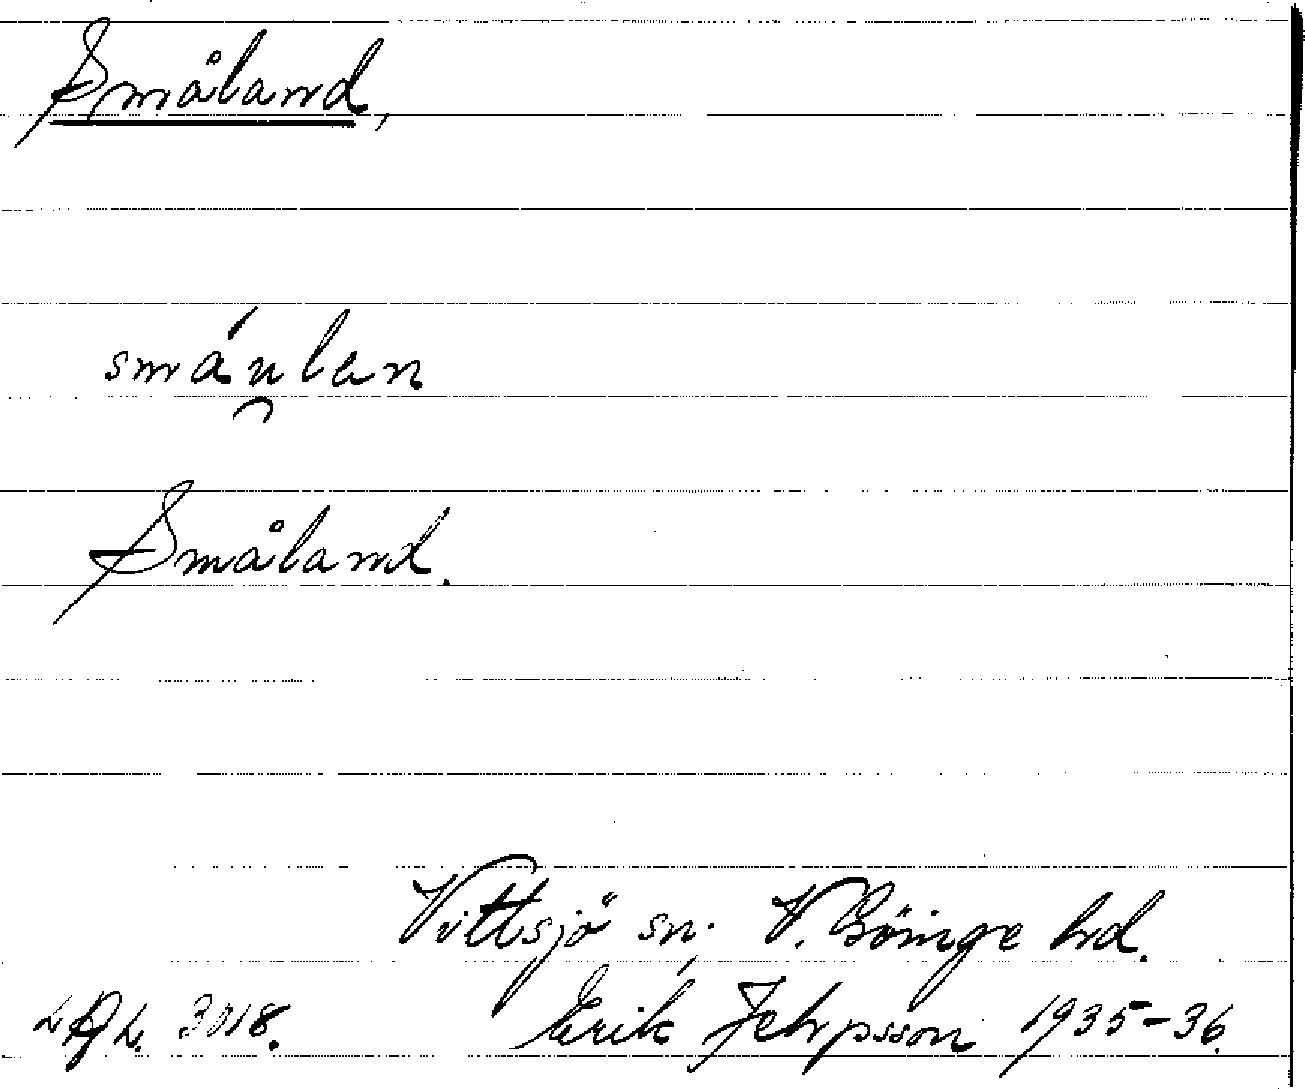 Småland,
smáu̯lan
Småland.
Vittsjö sn. V. Göinge hd.
3018. Erik Jeppsson 1935-36.